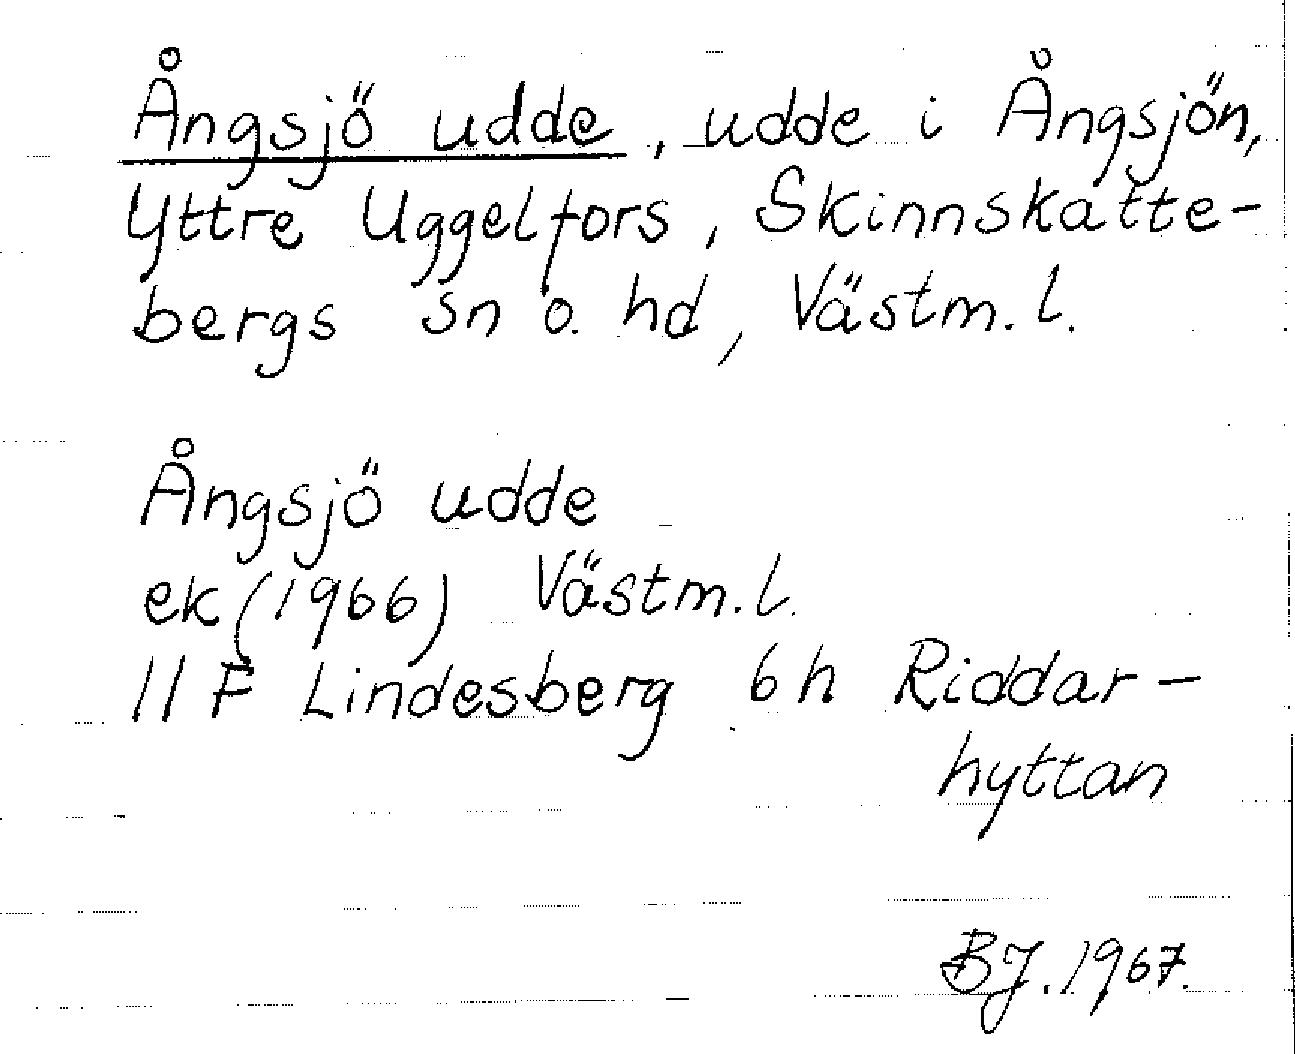 Ångsjö udde, udde i Ångsjön,
Yttre Uggelfors, Skinnskatte-
bergs sn o. hd, Västm. l.
Ångsjö udde
ek (1966) Västm. l.
11 F Lindesberg 6 h Riddar-
hyttan
BJ. 1967.